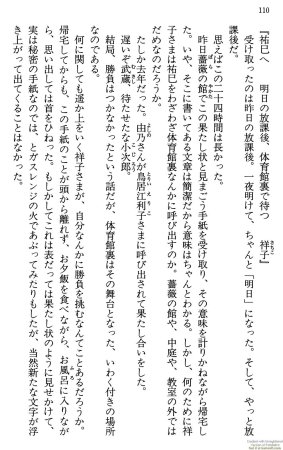 110
『祐巳へ　明日の放課後、体育館裏で待つ　祥子』
さちこ
受け取ったのは昨日の放課後。一夜明けて、ちゃんと「明日」になった。そして、やっと放
課後だ。
思えばこの二十四時間は長かった。
昨日薔薇の館でこの果たし状と見まごう手紙を受け取り、その意味を計りかねながら帰宅し
た。いや、そこに書いてある文章は簡潔だから意味はちゃんとわかる。しかし、何のために祥
子さまは祐巳をわざわざ体育館裏なんかに呼び出すのか。薔薇の館や、中庭や、教室の外では
だめなのだろうか。
たしか去年だった。由乃さんが鳥居江利子さまに呼び出されて果たし合いをした。
遅いぞ武蔵、待たせたな小次郎。
結局、勝負はつかなかったという話だが、体育館裏はその舞台となった、いわく付きの場所
なのである。
何に関しても遥か上をいく祥子さまが、自分なんかに勝負を挑むなんてことあるだろうか。
帰宅してからも、この手紙のことが頭から離れず、お夕飯を食べながら、お風呂に入りなが
ら、思い出しては首をひねった。もしかしてこれは表だっては果たし状のように見せかけて、
実は秘密の手紙なのでは、とガスレンジの火であぶってみたりもしたが、当然新たな文字が浮
き上がって出てくることはなかった。